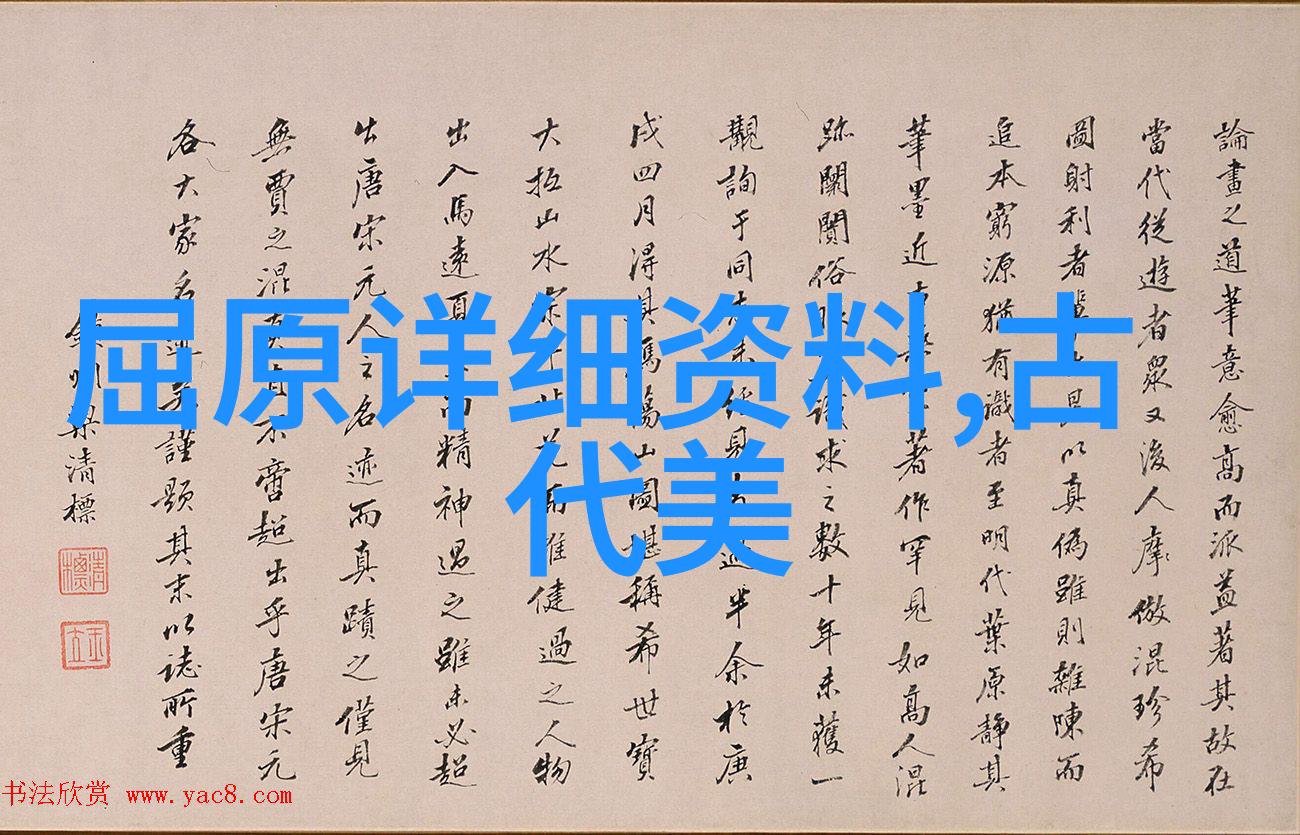 論畫之道筆意愈高而派益著其故在
當代從遊者眾又後人摩倣混珍希
圖射利者以真偽雖則雜陳而
追本窮源猶有識者至明代葉原靜其
筆墨近著作罕見如高人混
跡闤闠俗求之數十年未獲一
觀詢于同未經見過半余於庚
戌四月得其山圖堪稱希世寶
大抵山水宗而雄健過之人物
出入馬遠夏而精神過之雖未必超
出唐宋元人之名迹而真蹟之僅見
無賈之混不啻超出乎唐宋元
各大家名迹矣謹題其末以誌所重
梁清標
清標
玉立
屈原详细资料,古
代美
书法欣赏 www.yac8.com